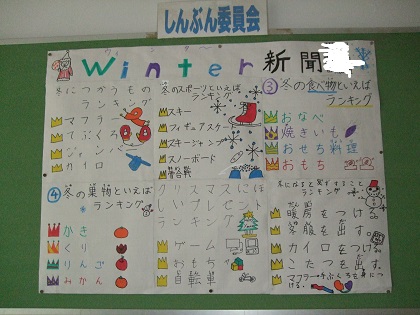 しんぶん委員会
ウィンター
Winter 新聞
冬につかうもの
ランキング
マフラー
てぶくろ
ジャンバー
カイロ
冬のスポーツといえば
ランキング
スキー
フィギュアスケート
スキージャンプ
スノーボード
③冬の食べ物といえば
ランキング
おなべ
焼きいも
おせち料理
おもち
④冬の果物といえば
ランキング
かき
くり
りんご
みかん
クリスマスにほ
しいプレゼント
ランキング
ゲーム
おもちゃ
自転車
冬になると
ランキング
暖房をつける
冬服を出す。
カイロを出す。
こたつを出す。